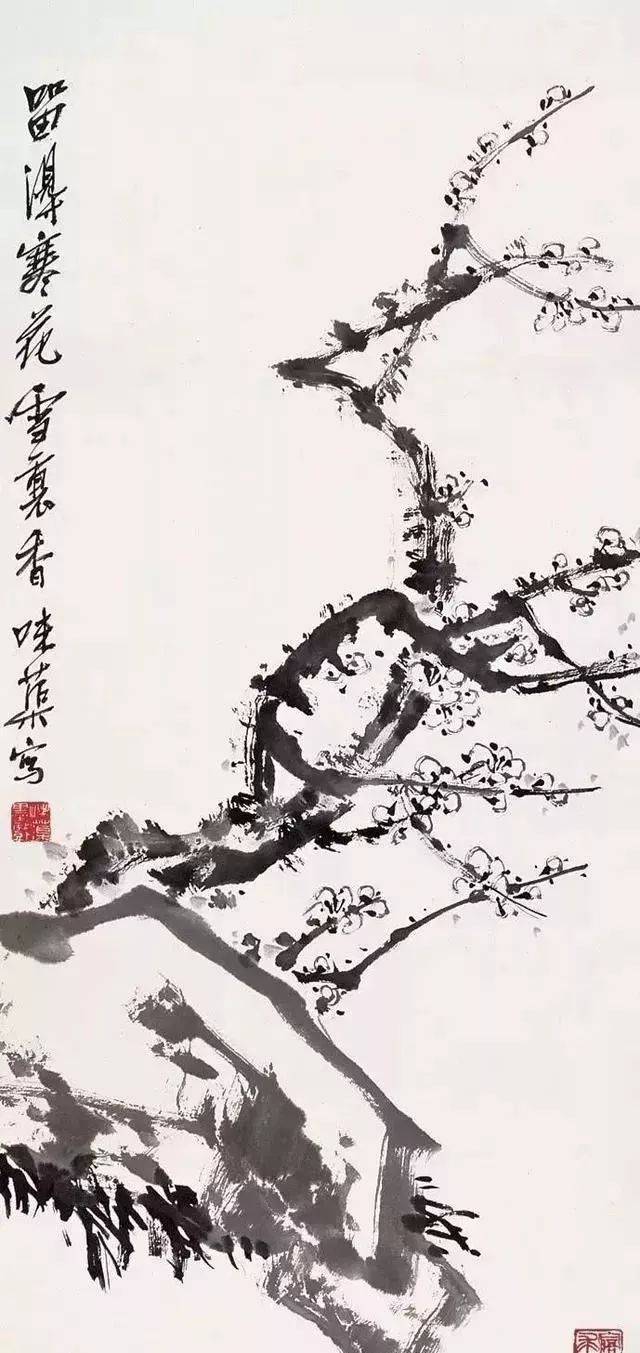 畱得寒花雪裏香 味蕖寫